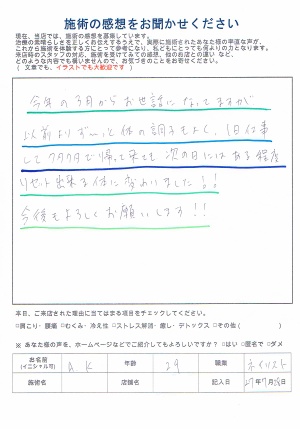 施術の感想をお聞かせください
現在、当店では、施術の感想を募集しています。
これから施術を体験する方にとって参考になり、私どもにとっても何よりの力となります。
どのような内容でも構いませんので、お気づきのことをお寄せください。
( 文章でも、イラストでも大歓迎です )
今年の3月からお世話になってますが
以前よりず〜っと体の調子もよく、1日仕事
してクタクタで帰って来ても 次の日にはある程度
リセット出来る体に変わりました!!
今後もよろしくお願いします!!
本日、ご来店された理由に当てはまる項目をチェックしてください。
□肩こり・腰痛 □むくみ・冷え性 □ストレス解消・癒し・デトックス □その他( )
※ あなた様の声を、ホームページなどでご紹介してもよろしいですか? □はい □匿名で □ダメ
お名前 (イニシャル可) A K 年齢 29 職業 ネイリスト
施術名 店舗名 記入日 27年7月